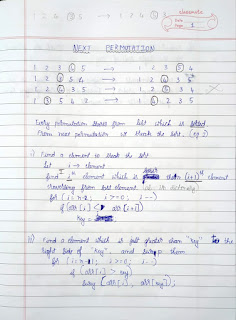 classmate
Date
Page 1
NEXT PERMUTATION
1 2 3 6 5 → 1 2 3 5 4
1 2 3 5 4 → 1 2 4 3 5
1 2 → 1 2
1 3 5 4 2 → 1 4 2 3 5
Every permutation starts from list which is sorted
From next permutation we break the list. (eg 3)
i) Find a element to break the list
Let i → element
find i th element which is than (i+1)th element
traversing from last element
for (i = n-2; i >= 0; i--)
if (arr[i] < arr[i+1])
key =
ii) Find a element which is just greater than "key" to the
right side of "key". and swap them
for (i = n-1; i >= 0; i--)
if (arr[i] > key)
swap (arr[i], arr[key]);